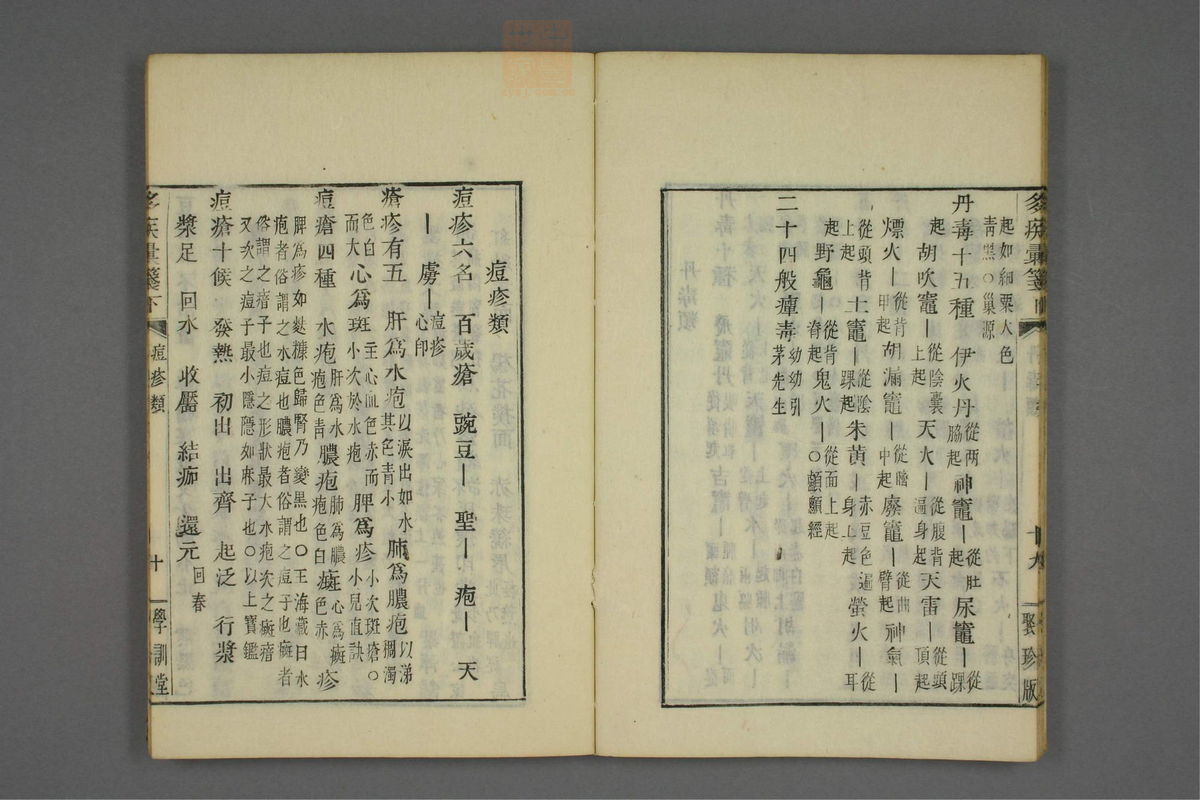 起如細粟大色
靑黑○巢源
丹毒十五種　伊火丹從兩脇起神竈―從肚起尿竈―從踝
起胡吹竈―從陰囊上起天火―從腹背逼身起天雷―從頭頂起
熛火―從背甲起胡漏竈―從臍中起廉竈―從曲臂起神氣―
從頭背上起土竈―從陰踝起朱黃―赤豆色遍身上起螢火―從耳
起野龜―從背脊起鬼火―從面上起○顱顖經
二十四般瘴毒幼幼引茅先生
十九
聚珍版
痘疹類
痘疹六名　百歲瘡　豌豆―　聖―　疱―　天
―　虜―痘疹心印
瘡疹有五　肝爲水疱以淚出如水其色靑小肺爲膿疱以涕稠濁
色白而大心爲斑主心血色赤而小次於水疱脾爲疹小次斑瘡○小兒直訣
痘瘡四種　水疱肝爲水疱色靑膿疱肺爲膿疱色白㿀心爲㿀色赤疹
脾爲疹如麩糠色歸腎乃變黑也○王海藏曰水
疱者俗謂之水痘也膿疱者俗謂之痘子也㿀者
俗謂之瘄子也痘之形狀最大水疱次之㿀瘄
又次之痘子最小隱隱如麻子也○以上寶鑑
痘瘡十候　發熱　初出　出齊　起泛　行漿
漿足　回水　收靨　結痂　還元回春
痘疹類
十
學訓堂